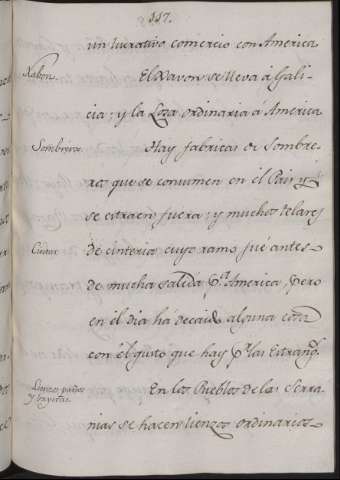 117.
un lucrativo comercio con America
Xabon.
El Xavon se lleva á Gali-
cia; y la Loza ordinaria á America
Sombreros
Hay fabricas de Sombre-
ros que se consumen en el Pais y
se extraen fuera; y muchos telares
Cintas
de cinteria cuyo ramo fué antes
de mucha salida p.ª America, pero
en el dia ha decaido alguna cosa
con el gusto que hay p.r las extrang.s
Lienzos paños
y bayetas.
En los Pueblos de las Serra-
nias se hacen lienzos ordinarios